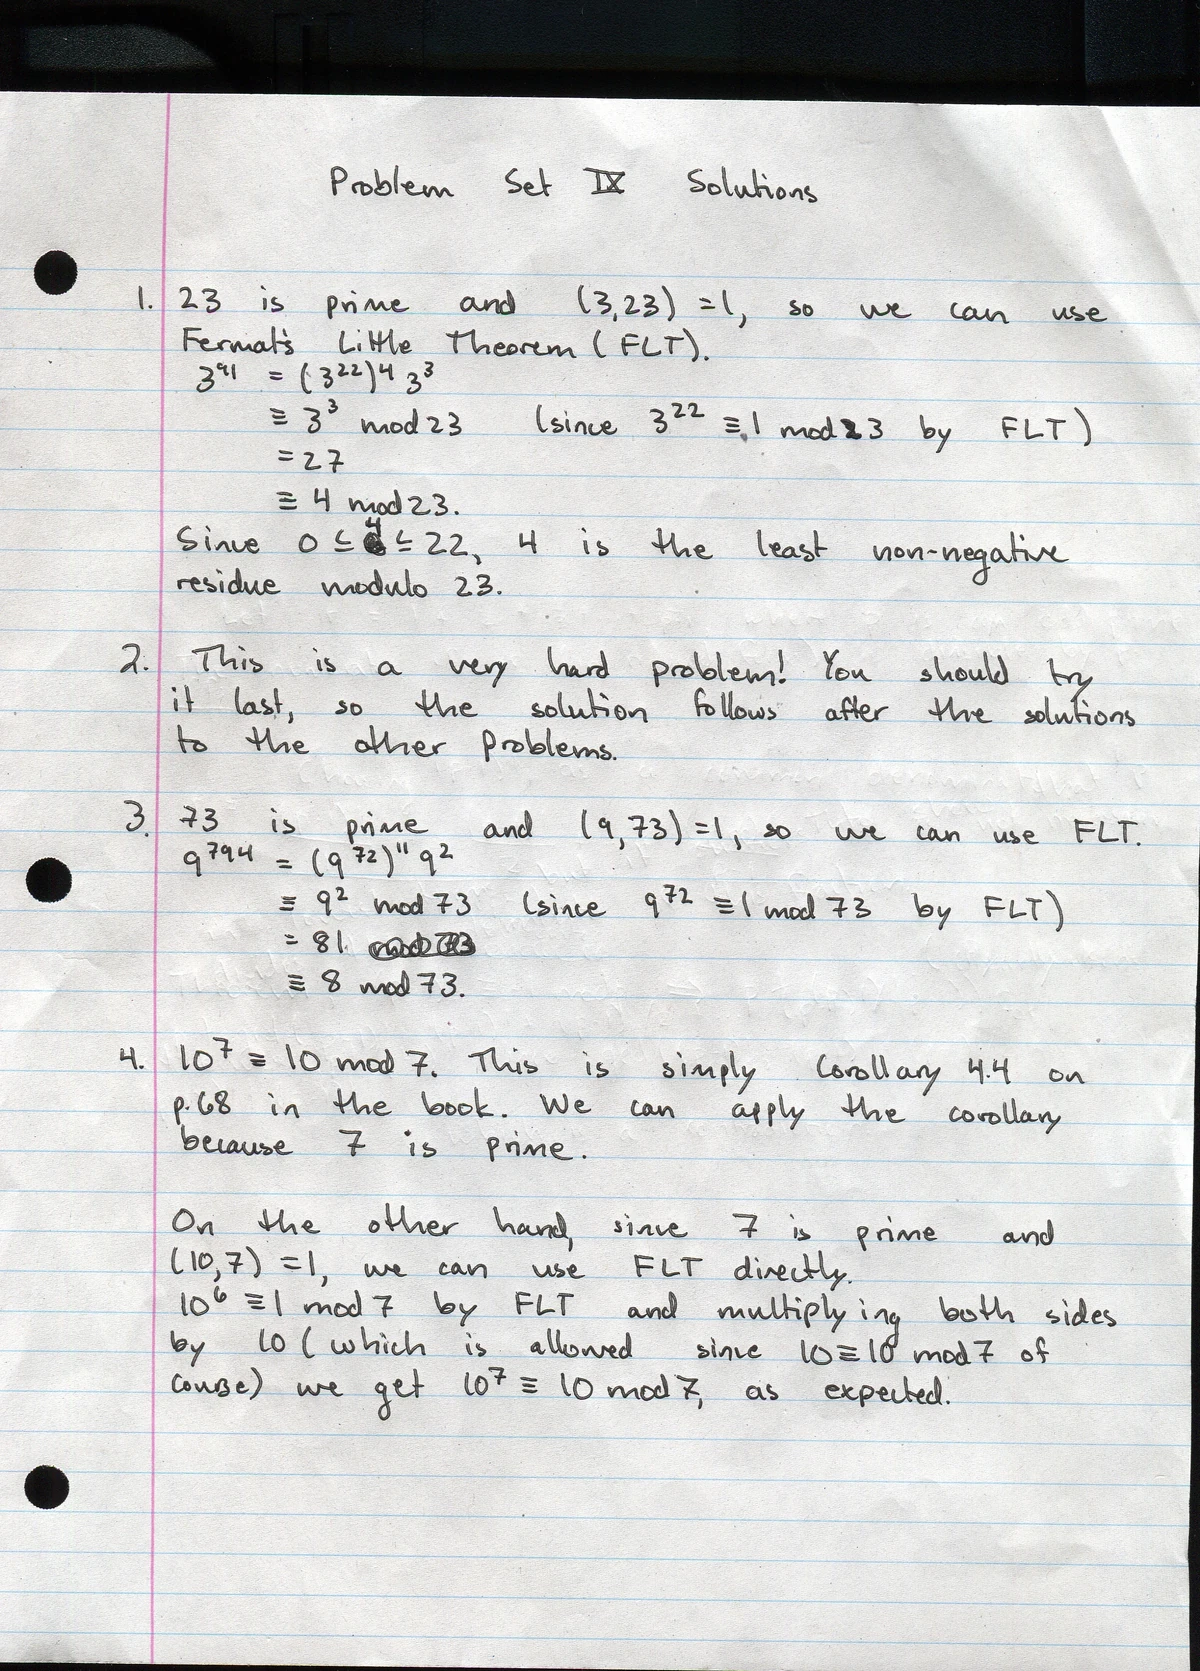 Problem Set IX Solutions
1. 23 is prime and (3,23) = 1, so we can use
Fermat's Little Theorem (FLT).
3^91 = (3^22)^4 3^3
≡ 3^3 mod 23 (since 3^22 ≡ 1 mod 23 by FLT)
= 27
≡ 4 mod 23.
Since 0 ≤ 4 ≤ 22, 4 is the least non-negative
residue modulo 23.
2. This is a very hard problem! You should try
it last, so the solution follows after the solutions
to the other problems.
3. 73 is prime and (9,73) = 1, so we can use FLT.
9^794 = (9^72)^11 9^2
≡ 9^2 mod 73 (since 9^72 ≡ 1 mod 73 by FLT)
= 81
≡ 8 mod 73.
4. 10^7 ≡ 10 mod 7. This is simply Corollary 4.4 on
p.68 in the book. We can apply the corollary
because 7 is prime.
On the other hand, since 7 is prime and
(10,7) = 1, we can use FLT directly.
10^6 ≡ 1 mod 7 by FLT and multiplying both sides
by 10 (which is allowed since 10 ≡ 10 mod 7 of
course) we get 10^7 ≡ 10 mod 7, as expected.